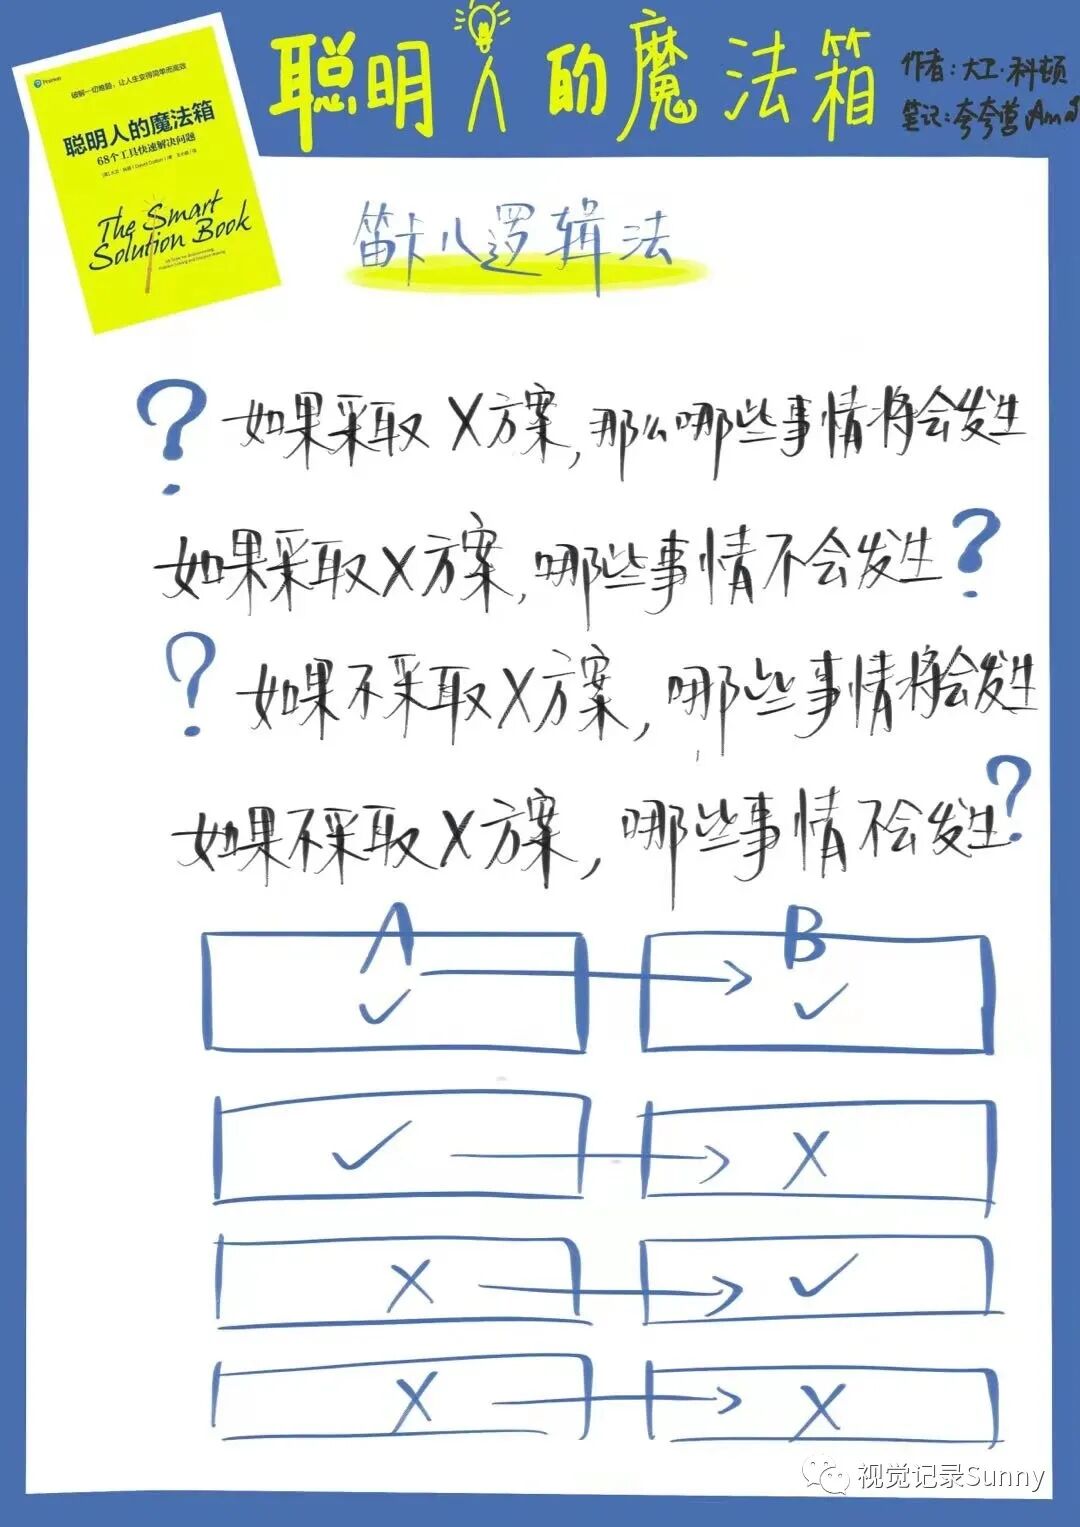 聪明人的魔法箱
作者:大卫·科顿
笔记:夸夸营
Pearson
破解一切难题,让人生变得简单而高效
聪明人的魔法箱
68个工具快速解决问题
The Smart
Solution Book
笛卡儿逻辑法
? 如果采取X方案,那么哪些事情将会发生
如果采取X方案,哪些事情不会发生?
? 如果不采取X方案,哪些事情将会发生
如果不采取X方案,哪些事情不会发生?
A → B
✓ ✓
✓ → X
X → ✓
X → X
视觉记录Sunny